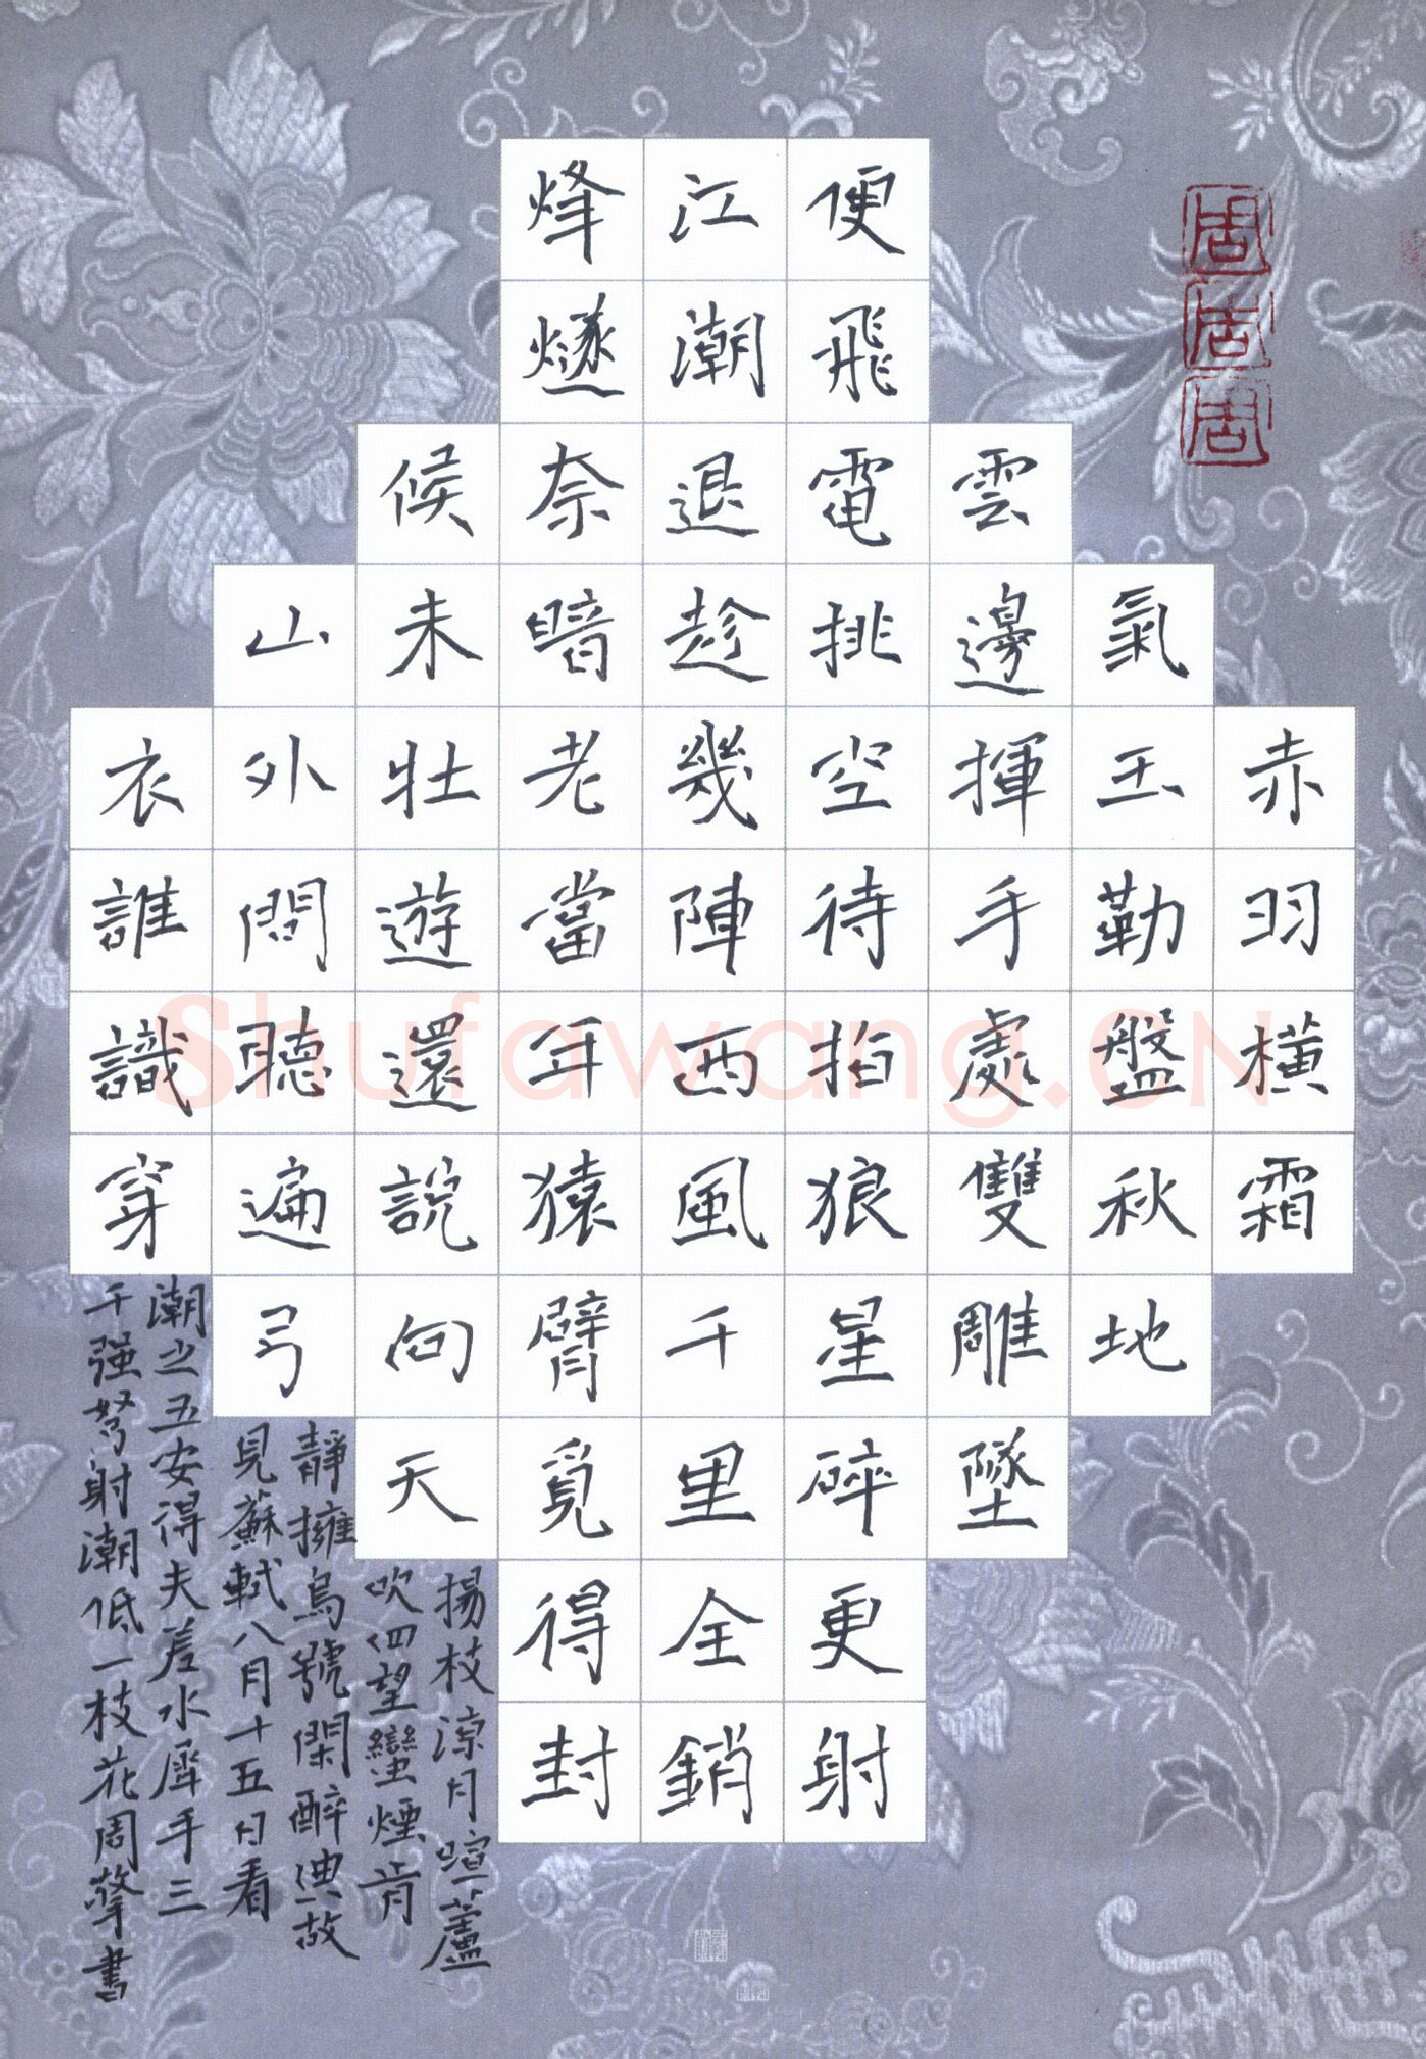 周周周
赤羽橫霜
氣玉勒盤秋地
雲邊揮手處雙雕墜
便飛電挑空待拍狼星碎更射
江潮退趁幾陣西風千里全銷
烽燧奈暗老當年猿臂覓得封
候未壯遊還說向天
山外問聽遍弓
衣誰識穿
揚枝涼月喧蘆
吹四望蠻煙肯
靜擁烏號閑醉典故
見蘇軾八月十五日看
潮之五安得夫差水犀手三
千强弩射潮低一枝花周擎書
Shufawang.CN